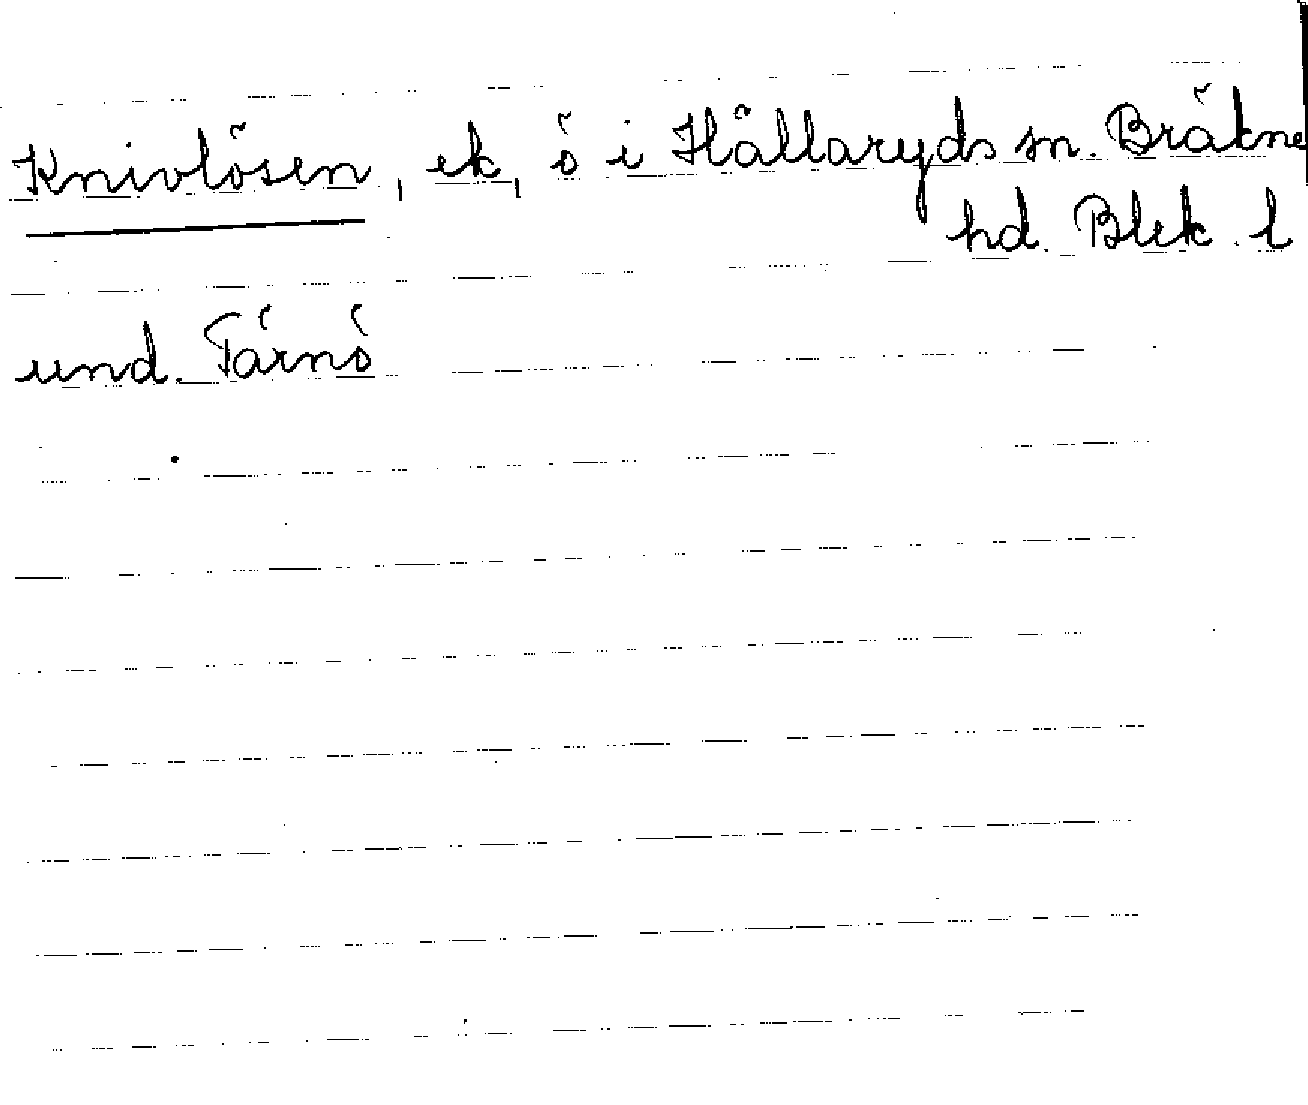 Knivlösen, ek, ö i Hällaryds sn. Bräkne
hd. Blek. l
und. Tärnö